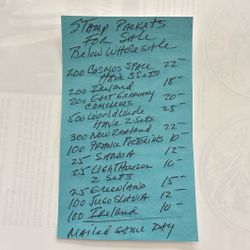 STAMP PACKETS
FOR SALE
BELOW WHOLESALE
200 COSMOS SPACE 22-
HAVE 3 SETS
200 IRELAND 18-
200 EAST GERMANY 20-
COMMEMS
500 WORLDWIDE 25-
HAVE 2 SETS
300 NEW ZEALAND 22-
100 FRANCE PICTORIALS 10-
25 SAMOA 12-
25 LIGHTHOUSES 10-
2 SETS
25 GREENLAND 15-
100 JUGOSLAVIA 12-
100 IRELAND 10-
MAILED SAME DAY